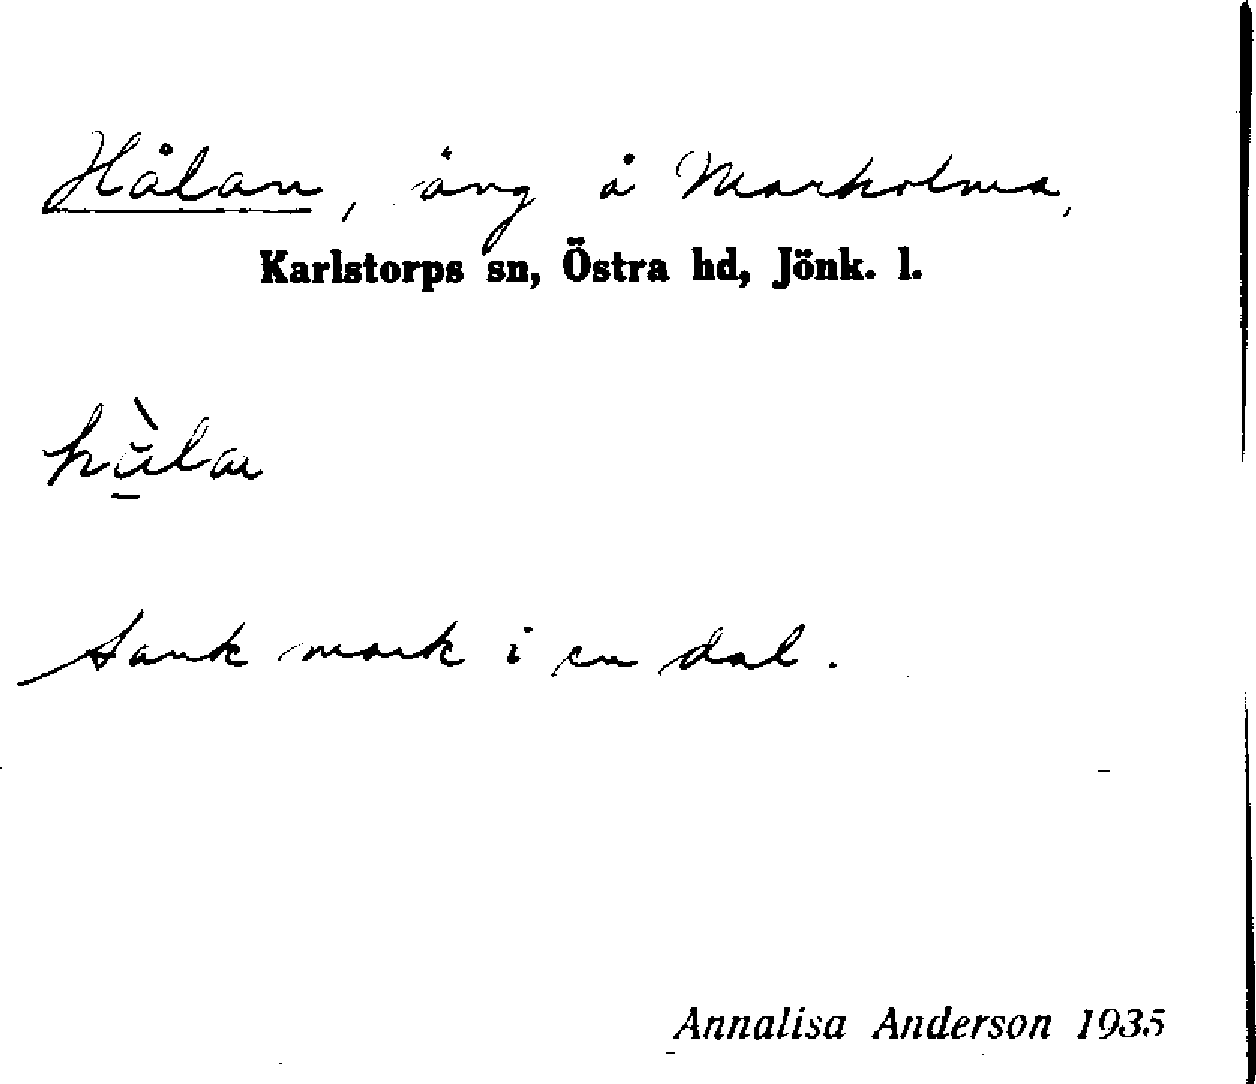 Hålan, äng å Marholma,
Karlstorps sn, Östra hd, Jönk. l.
Sank mark i en dal.
Annalisa Anderson 1935